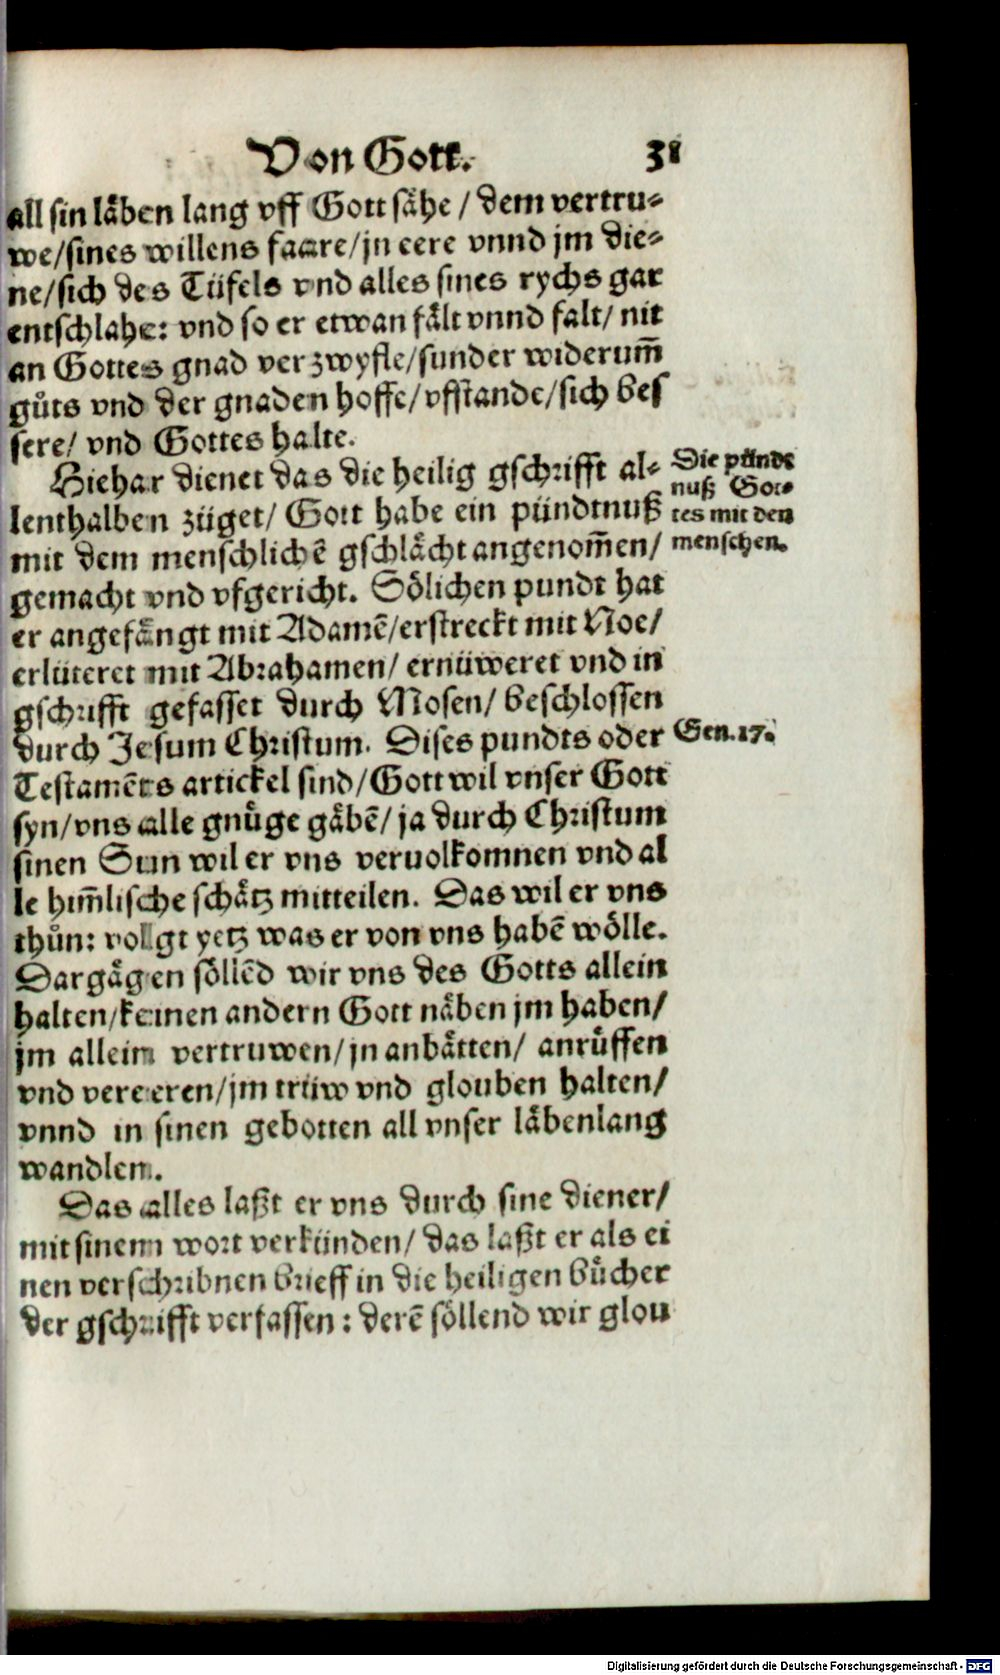 Von Gott. 31
all sin läben lang vff Gott sähe / dem vertru⸗
we/sines willens faare/jn eere vnnd jm die⸗
ne/sich des Tüfels vnd alles sines rychs gar
entschlahe: vnd so er etwan fält vnnd falt/ nit
an Gottes gnad verzwyfle/sunder widerum̃
gůts vnd der gnaden hoffe/vfstande/sich bes
sere/ vnd Gottes halte.
Hiehar dienet das die heilig gschrifft al⸗
lenthalben züget/ Gott habe ein pündtnuß
mit dem menschlichẽ gschlächt angenom̃en/
gemacht vnd vfgericht. Sölichen pundt hat
er angefängt mit Adamẽ/erstreckt mit Noe/
erlüteret mit Abrahamen/ ernüweret vnd in
gschrifft gefasset durch Mosen/ beschlossen
durch Jesum Christum. Dises pundts oder
Testamẽts artickel sind/Gott wil vnser Gott
syn/vns alle gnůge gäbẽ/ ja durch Christum
sinen Sun wil er vns veruolkomnen vnd al
le him̃lische schätz mitteilen. Das wil er vns
thůn: vollgt yetz was er von vns habẽ wölle.
Dargägen söllẽd wir vns des Gotts allein
halten/keinen andern Gott näben jm haben/
jm allein vertruwen/jn anbätten/ anrůffen
vnd vereeren/jm trüw vnd glouben halten/
vnnd in sinen gebotten all vnser läbenlang
wandlen.
Das alles laßt er vns durch sine diener/
mit sinem wort verkünden/ das laßt er als ei
nen verschribnen brieff in die heiligen bůcher
der gschrifft verfassen: derẽ söllend wir glou
Die pündt
nuß Got⸗
tes mit den
menschen.
Gen. 17.
Digitalisierung gefördert durch die Deutsche Forschungsgemeinschaft - DFG